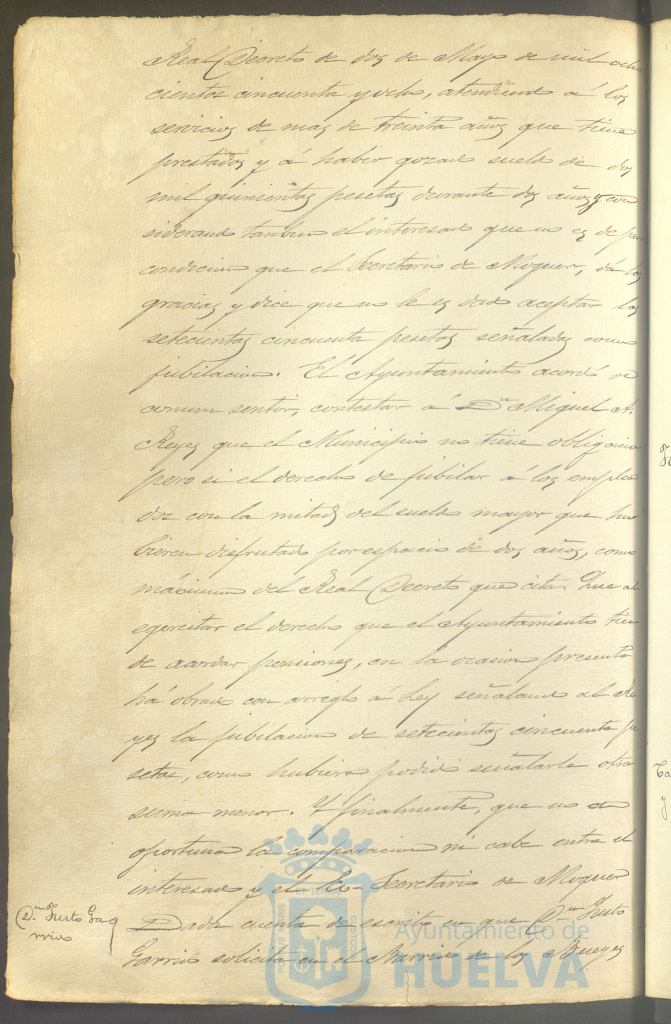 Real Decreto de dos de Mayo de mil ocho
cientos cincuenta y ocho, atendiendo á los
servicios de mas de treinta años que tiene
prestados y á haber gozado sueldo de dos
mil quinientas pesetas durante dos años y con
siderando tambien el interesado que no es de peor
condicion que el Secretario de Moguer, dá las
gracias y dice que no le es dado aceptar las
setecientas cincuenta pesetas señaladas como
jubilacion. El Ayuntamiento acordó de
comun sentir, contestar á Dn Miguel A.
Reyes que el Municipio no tiene obligacion
pero si el derecho de jubilar á los emplea
dos con la mitad del sueldo mayor que hu
bieren disfrutado por espacio de dos años, como
máximun del Real Decreto que cita. Que al
egercitar el derecho que el Ayuntamiento tiene
de acordar pensiones, en la ocasion presente
há obrado con arreglo á Ley señalando al Re
yes la jubilacion de setecientas cincuenta pe
setas, como hubiera podido señalarle otra
suma menor. Y finalmente, que no es
oportuna la comparacion ni cabe entre el
interesado y el Ex-Secretario de Moguer
Dn Justo Ga
rrido
Dada cuenta de escrito en que Dn Justo
Garrido solicita en el Barrio de los Bueyes
Ayuntamiento de
HUELVA